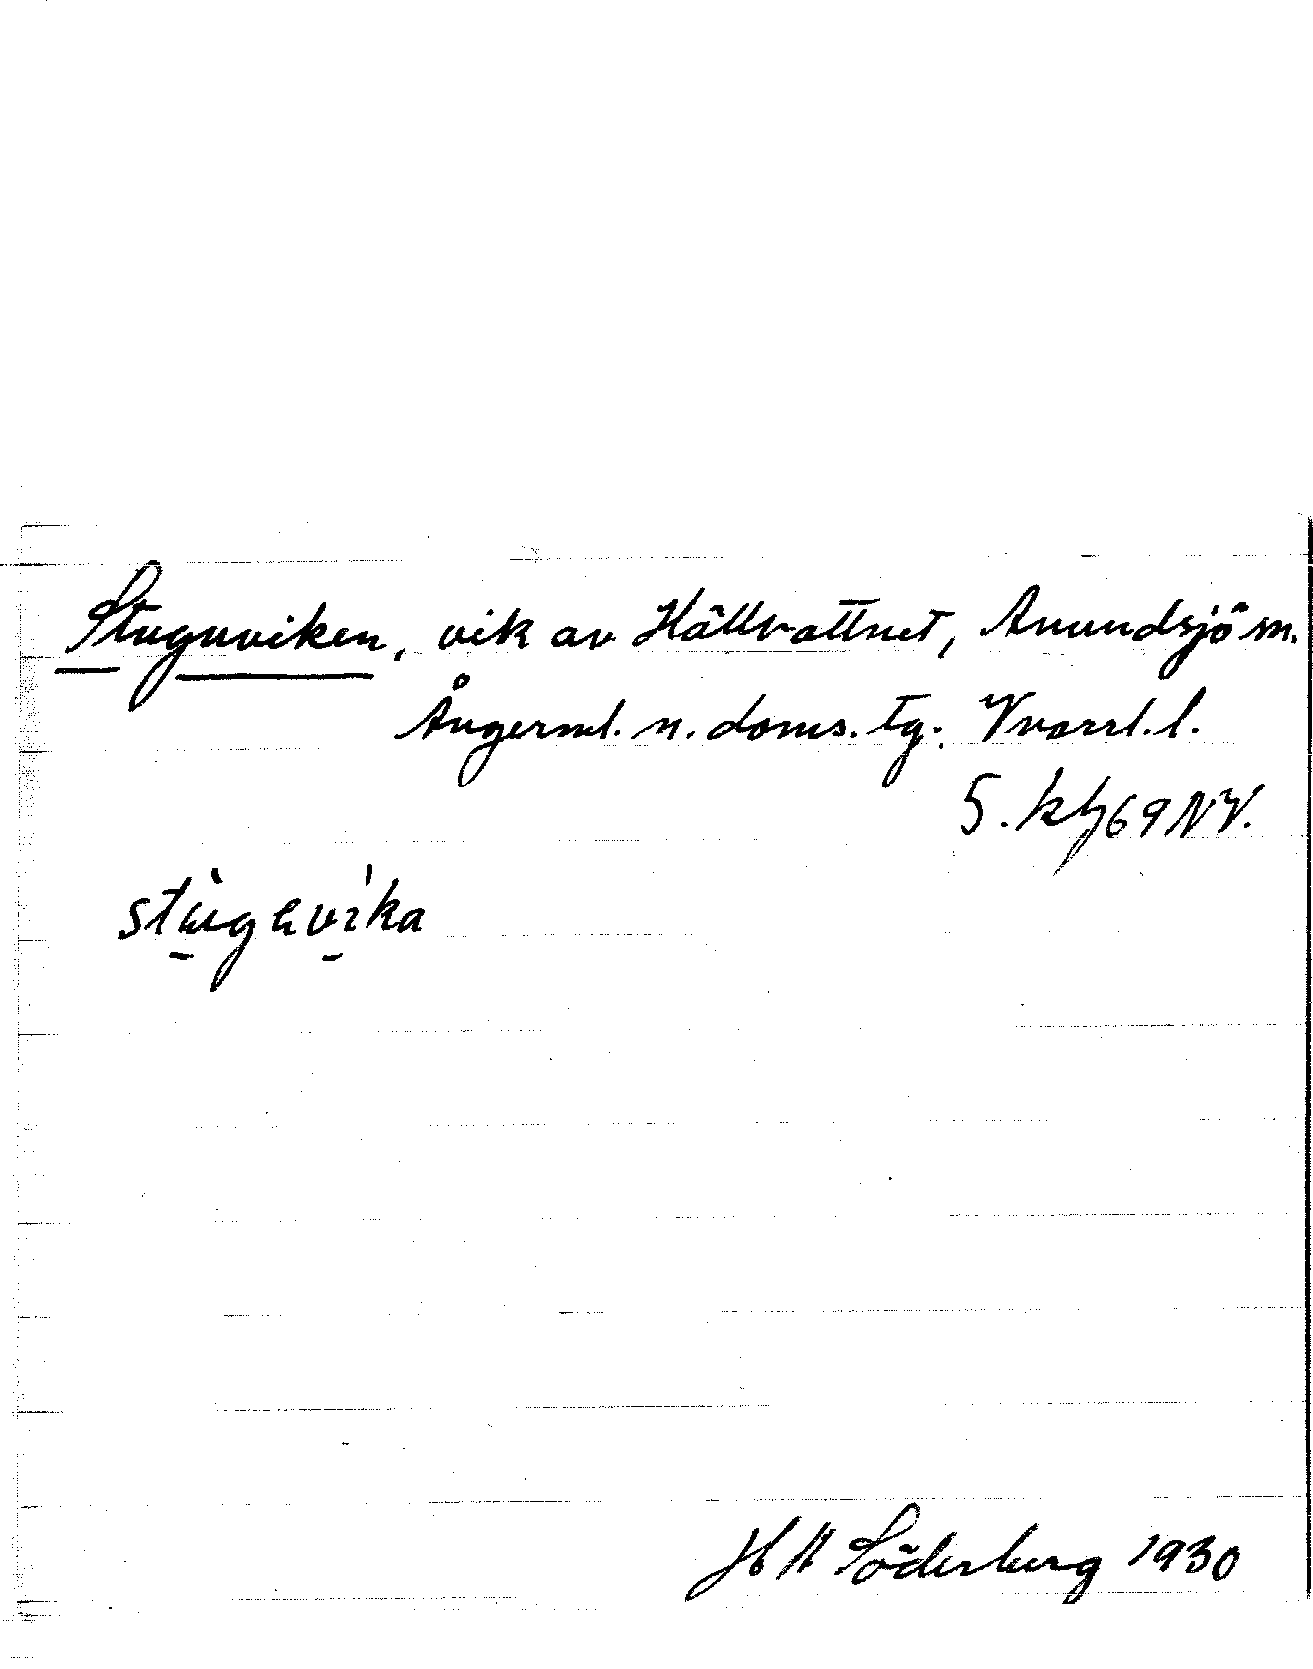 Stuguviken, vik av Hällvattnet, Anundsjö sn.
Ångerml. n. doms. tg. Vnorrl. l.
G. kbl 69 NV.
stùguvı̀ka
H A Söderberg 1930